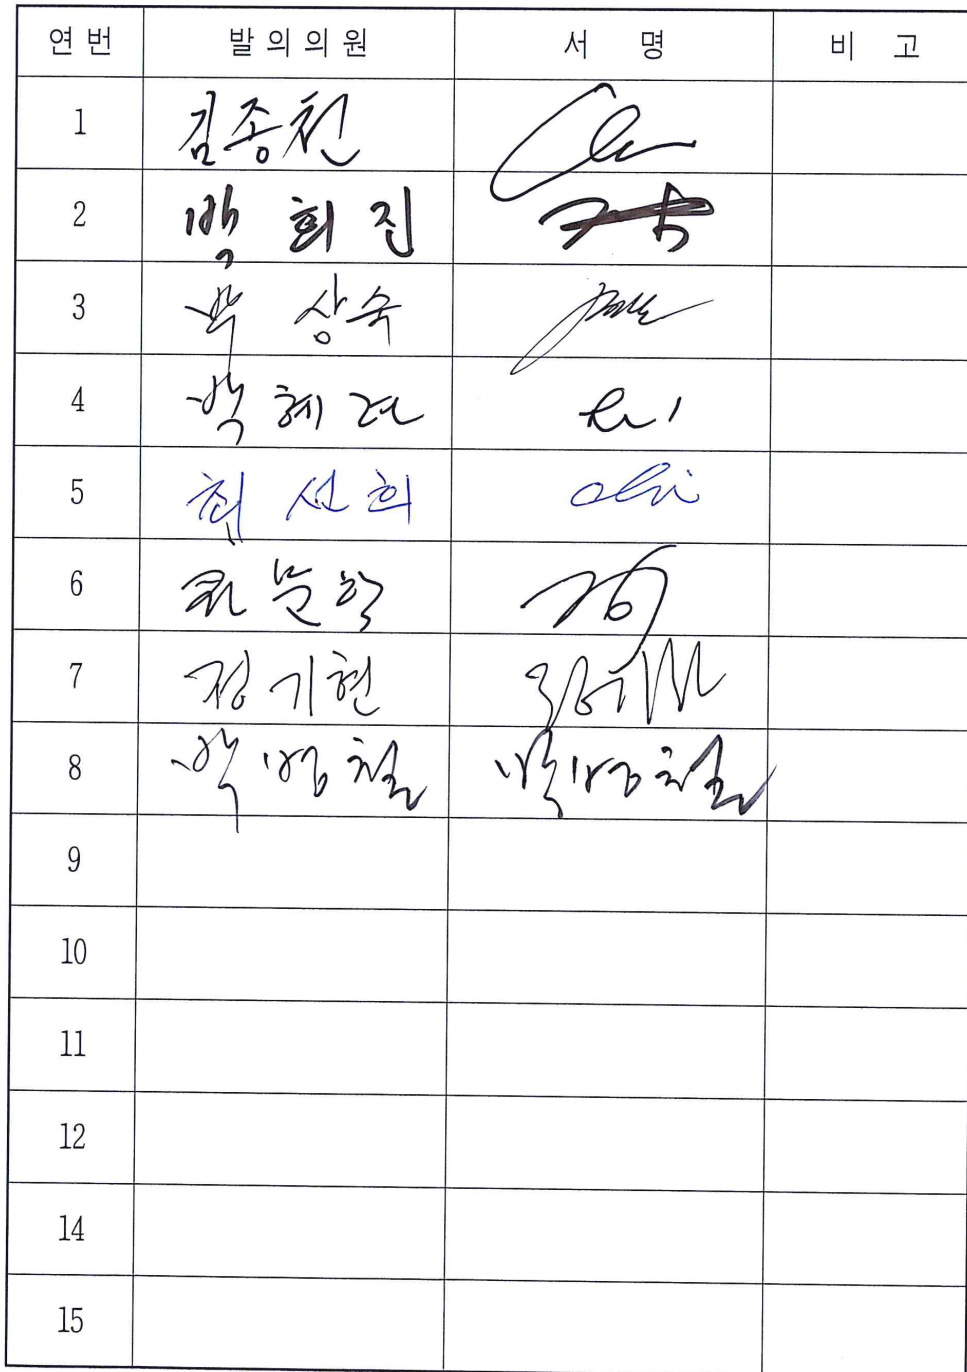 연번 발의의원 서 명 비 고
1 김종천
2 박희진
3 박상숙
4 박혜련
5 최선희
6
7 정기현
8 박병철 박병철
9
10
11
12
14
15